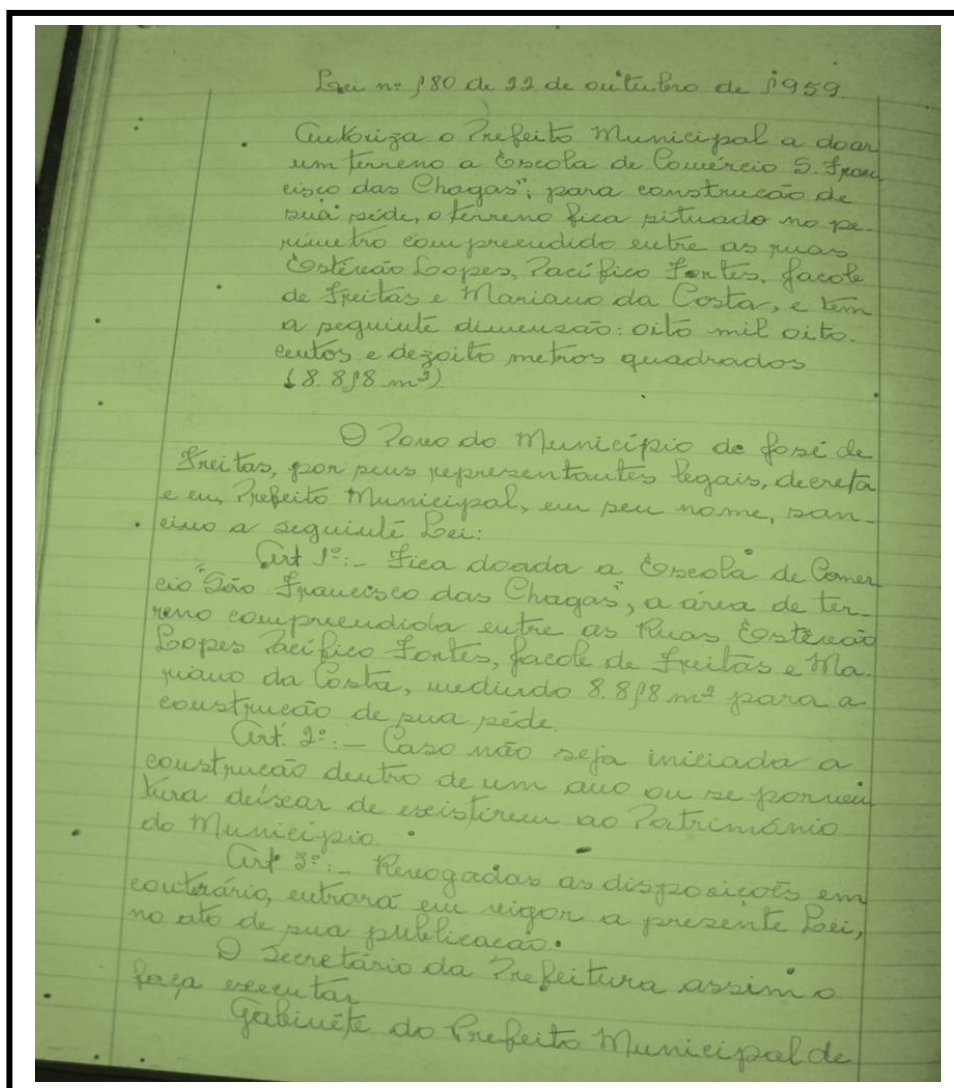 Lei nº 180 de 22 de outubro de 1959.
Autoriza o Prefeito Municipal a doar
um terreno a Escola de Comércio S. Fran
cisco das Chagas", para construcão de
sua séde, o terreno fica situado no pe-
rímetro compreendido entre as ruas
Estêvão Lopes, Pacífico Fontes, Jacob
de Freitas e Mariano da Costa, e tem
a seguinte dimensão: oito mil oito-
centos e dezoito metros quadrados
(8.818 m²)
O Povo do Município de José de
Freitas, por seus representantes legais, decreta
e eu, Prefeito Municipal, em seu nome, san-
ciono a seguinte Lei:
Art 1º:- Fica doada a Escola de Comer
cio "São Francisco das Chagas", a área de ter-
reno compreendida entre as Ruas Estêvão
Lopes Pacífico Fontes, Jacob de Freitas e Ma-
riano da Costa, medindo 8.818 m² para a
construcão de sua séde.
Art. 2º:- Caso não seja iniciada a
construcão dentro de um ano ou se porven
tura deixar de existirem ao Patrimônio
do Município.
Art 3º:- Revogadas as disposicões em
contrário, entrará em vigor a presente Lei,
no ato de sua publicacão.
O Secretário da Prefeitura assim o
faça executar
Gabinête do Prefeito Municipal de